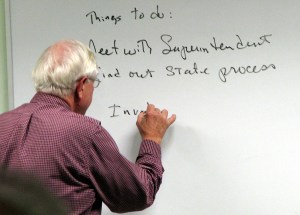 Things to do:
Meet with Superintendent
Find out State process
Inv